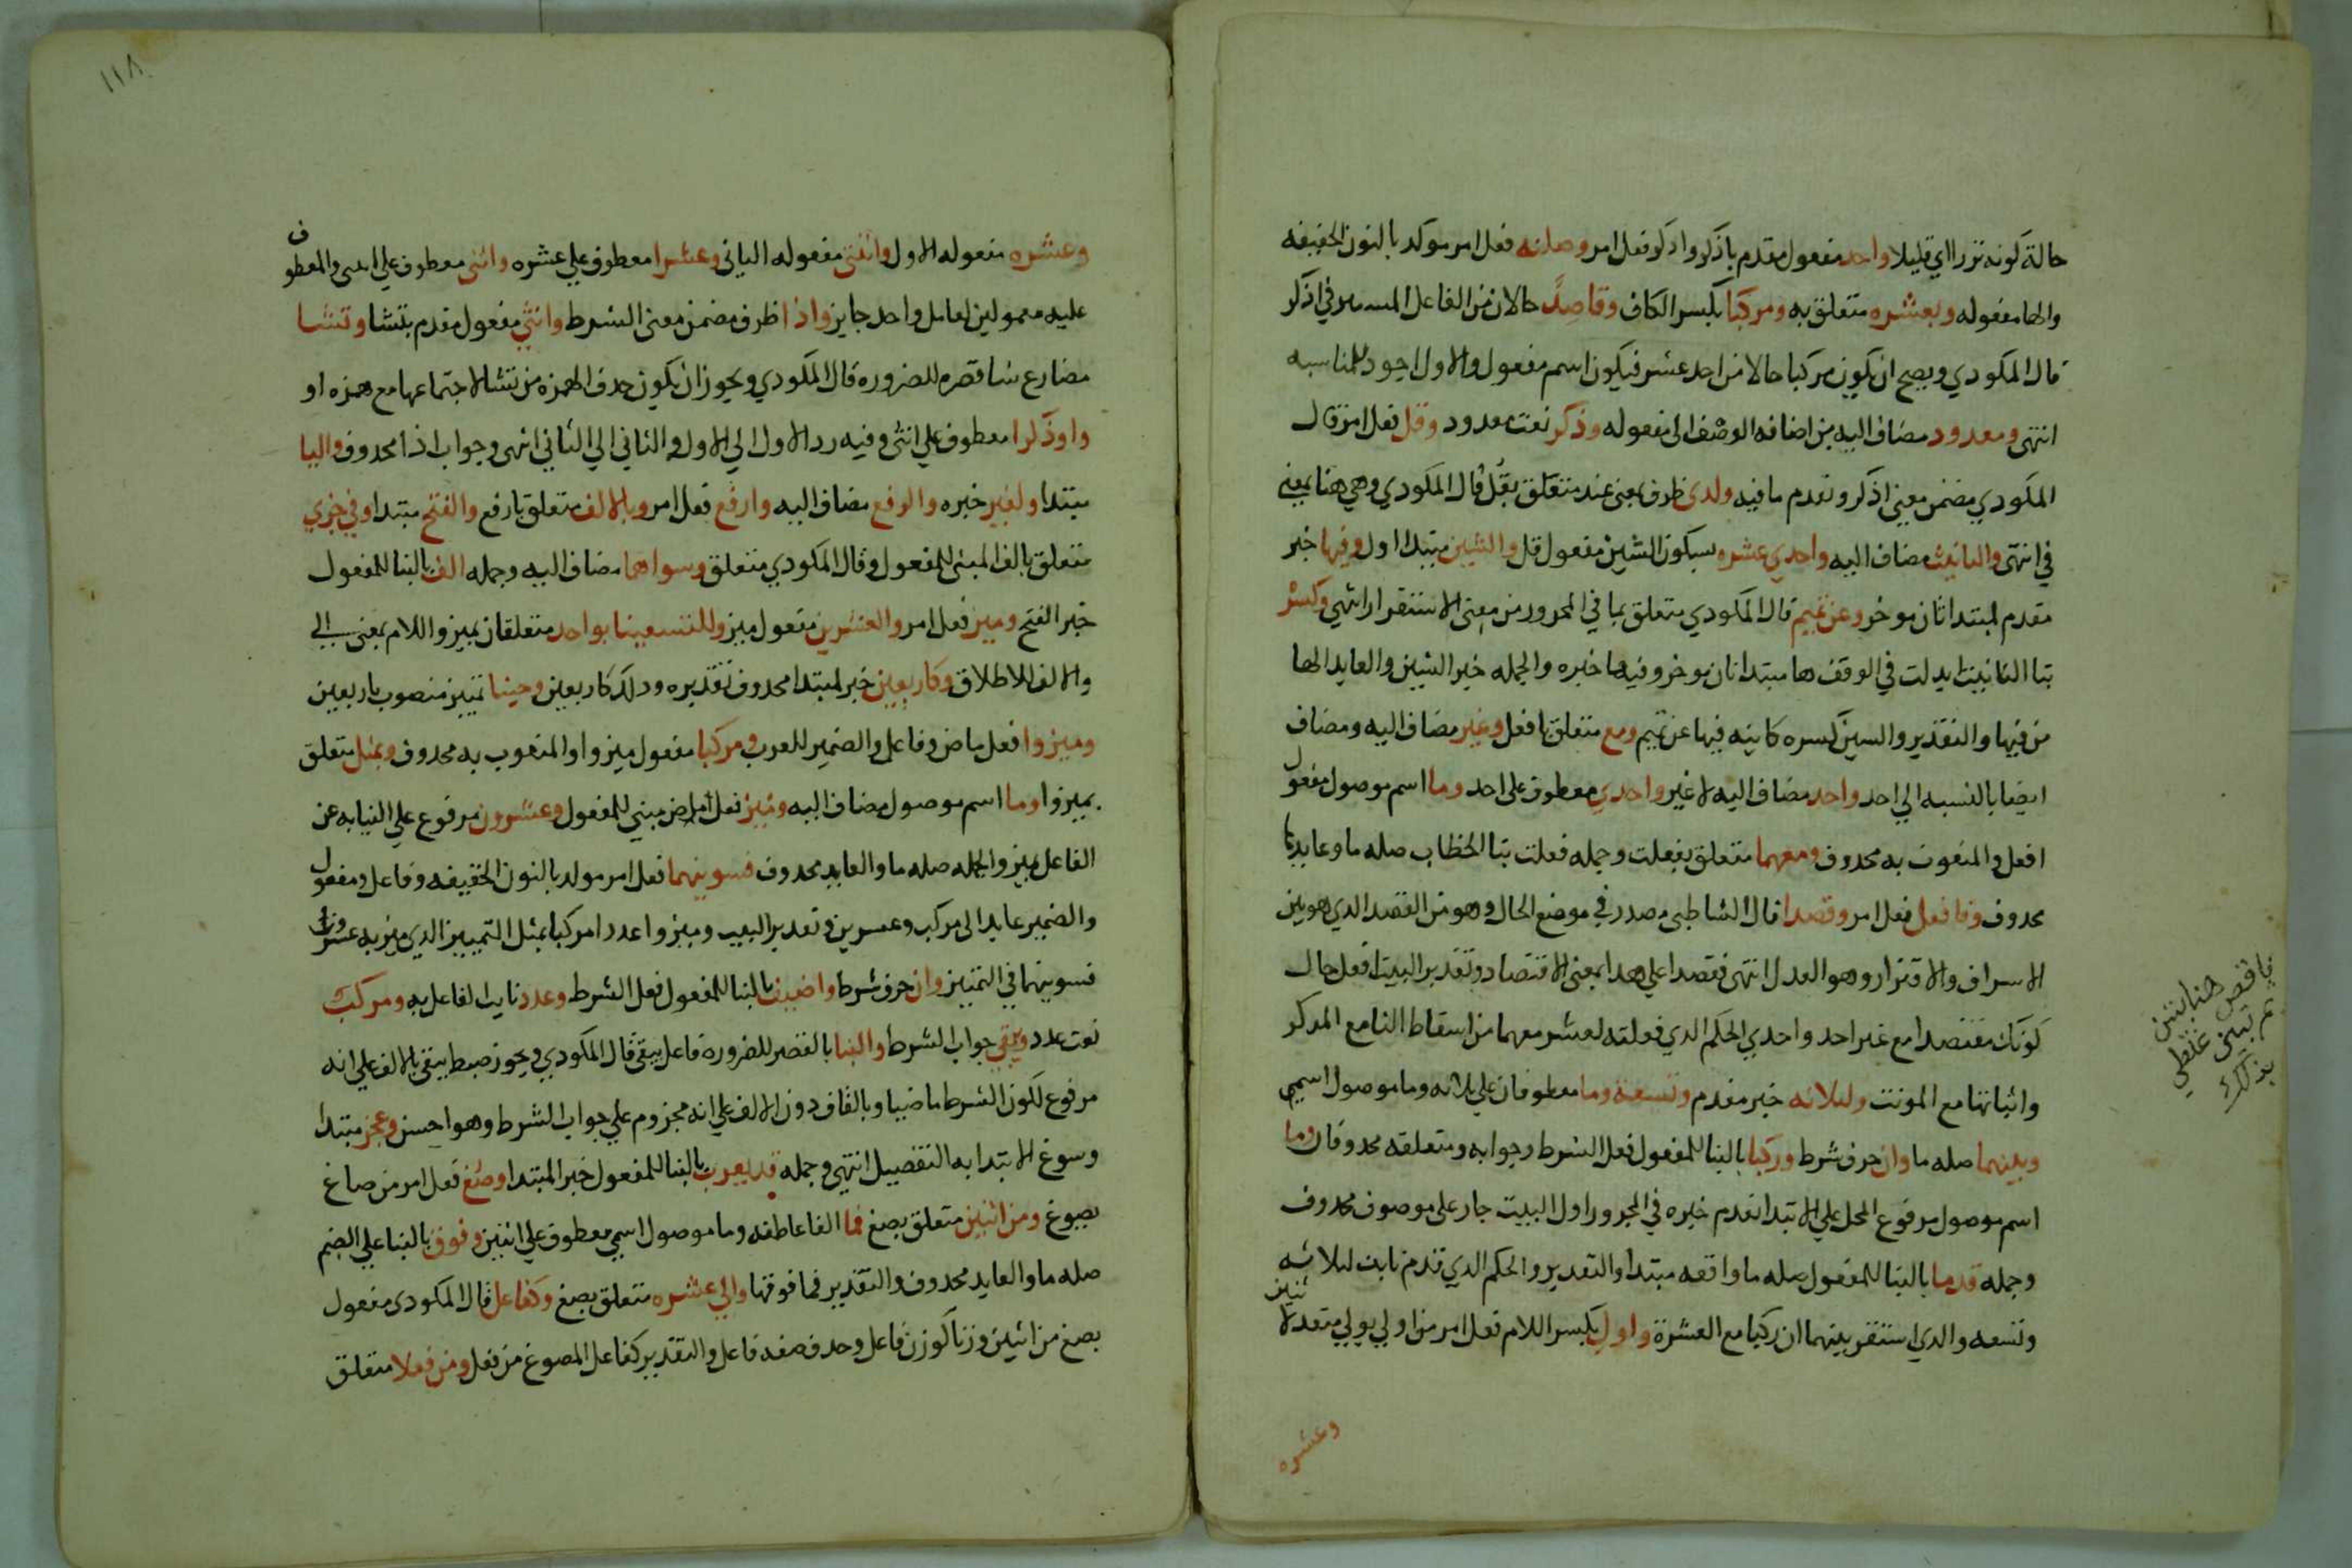 حالة كونه نزرا اي قليلا واحد مفعول مقدم باذكر واذكر فعل امر وصلنه فعل امر موكد بالنون الخفيفه
والها مفعوله وبعشره متعلق به ومركبا بكسر الكاف وقاصدً حالان من الفاعل المستتر في اذكر
قال المكودي ويصح ان يكون مركبا حالا من احد عشر فيكون اسم مفعول والاول اجود للمناسبه
انتهى ومعدود مضاف اليه من اضافه الوصف الى مفعوله وذكر نعت معدود وقل فعل امر قال
المكودي مضمن معنى اذكر وتقدم ما فيه ولدى ظرف بمعنى عند متعلق بقل قال المكودي وهي هنا بمعنى
في انتهى والتانيث مضاف اليه واحدي عشره بسكون الشين مفعول قل والشين مبتدا اول وفيها خبر
مقدم لمبتدا ثان موخر وعن تميم قال المكودي متعلق بما في المجرور من معنى الاستقرار انتهى وكسر
بتا التانيث ابدلت في الوقف ها مبتدا ثان موخر وفيها خبره والجمله خبر الشين والعايد الها
من فيها والتقدير والشين كسره كاينه فيها عن تميم ومع متعلق بافعل وغير مضاف اليه ومضاف
ايضا بالنسبه الي احد واحد مضاف اليه لا غير واحدي معطوف على احد وما اسم موصول مفعول
افعل والمنعوت به محدوف ومعهما متعلق بفعلت وجمله فعلت بتا الخطاب صله ما وعايدها
محدوف وفافعل فعل امر وقصدا قال الشاطبي مصدر في موضع الحال وهو من القصد الدي هو بين
الاسراف والاقتار وهو العدل انتهى فقصدا على هدا بمعنى الاقتصاد وتقدير البيت افعل حال
كونك مقتصدا مع غير احد واحدي الحكم الدي فعلته لعشر معهما من اسقاط التا مع المدكر
واثباتها مع المونث ولثلاثه خبر مقدم وتسعة وما معطوفان على ثلاثه وما موصول اسمي
وبينهما صله ما وان حرف شرط وركبا بالبنا للمفعول فعل الشرط وجوابه ومتعلقه محدوفان وما
اسم موصول مرفوع المحل علي الابتدا تقدم خبره في المجرور اول البيت جار على موصوف محدوف
وجمله قدما بالبنا للمفعول صله ما واقعه مبتدا والتقدير والحكم الدي قدم ثابت لثلاثه
وتسعه والدي استقر بينهما ان ركبا مع العشرة واول بكسر اللام فعل امر من اولي يولي متعد لاثنين
وعشره
وعشره مفعوله الاول واثنتي مفعوله الثاني وعشرا معطوف علي عشره واثني معطوف علي اثنتى والمعطوف
عليه معمولين لعامل واحد جايز واذا ظرف مضمن معنى الشرط وانثي مفعول مقدم بتشا وتشا
مضارع شا قصره للضروره قال المكودي ويجوز ان يكون حدف الهمزه من تشا لاجتماعها مع همزه او
واوذكرا معطوف علي انثى وفيه رد الاول الي الاول والثاني الي الثاني انتهى وجواب اذا محدوف واليا
مبتدا ولغير خبره والرفع مضاف اليه وارفع فعل امر وبالالف متعلق بارفع والفتح مبتدا وفي جزي
متعلق بالف المبنى للمفعول وقال المكودي متعلق وسواهما مضاف اليه وجمله الف بالبنا للمفعول
خبر الفتح وميز فعل امر والعشرين مفعول ميز وللتسعينا بواحد متعلقان بميز واللام بمعنى الي
والالف للاطلاق وكاربعين خبر لمبتدا محدوف تقديره ودلك كاربعين وحينا تمييز منصوب باربعين
وميزوا فعل ماض وفاعل والضمير للعرب ومركبا مفعول ميزوا والمنعوت به محدوف وبمثل متعلق
بميزوا وما اسم موصول مضاف اليه وميز فعل ماض مبني للمفعول وعشرون مرفوع علي النيابه عن
الفاعل بميز والجمله صله ما والعايد محدوف فسوينهما فعل امر موكد بالنون الخفيفه وفاعل ومفعول
والضمير عايد الى مركب وعشرين وتقدير البيت وميزوا عددا مركبا بمثل التمييز الدي ميز به عشرون
فسوينهما في التمييز وان حرف شرط واضيف بالبنا للمفعول فعل الشرط وعدد نايب الفاعل به ومركب
نعت عدد ويبقي جواب الشرط والبنا بالقصر للضروره فاعل يبقى قال المكودي ويجوز ضبط يبقى بالالف علي انه
مرفوع لكون الشرط ماضيا وبالقاف دون الالف علي انه مجزوم علي جواب الشرط وهو احسن وعجز مبتدا
وسوغ الابتدا به التفصيل انتهي وجمله قد يعرب بالبنا للمفعول خبر المبتدا وصغ فعل امر من صاغ
يصوغ ومن اثنين متعلق بصغ فما الفا عاطفه وما موصول اسمي معطوف علي اثنين وفوق بالبنا علي الضم
صله ما والعايد محدوف والتقدير فما فوقها والي عشره متعلق بصغ وكفاعل قال المكودي مفعول
بصغ من اثنين وزنا كوزن فاعل وحدف صفه فاعل والتقدير كفاعل المصوغ من فعل ومن فعلا متعلق
١١٨